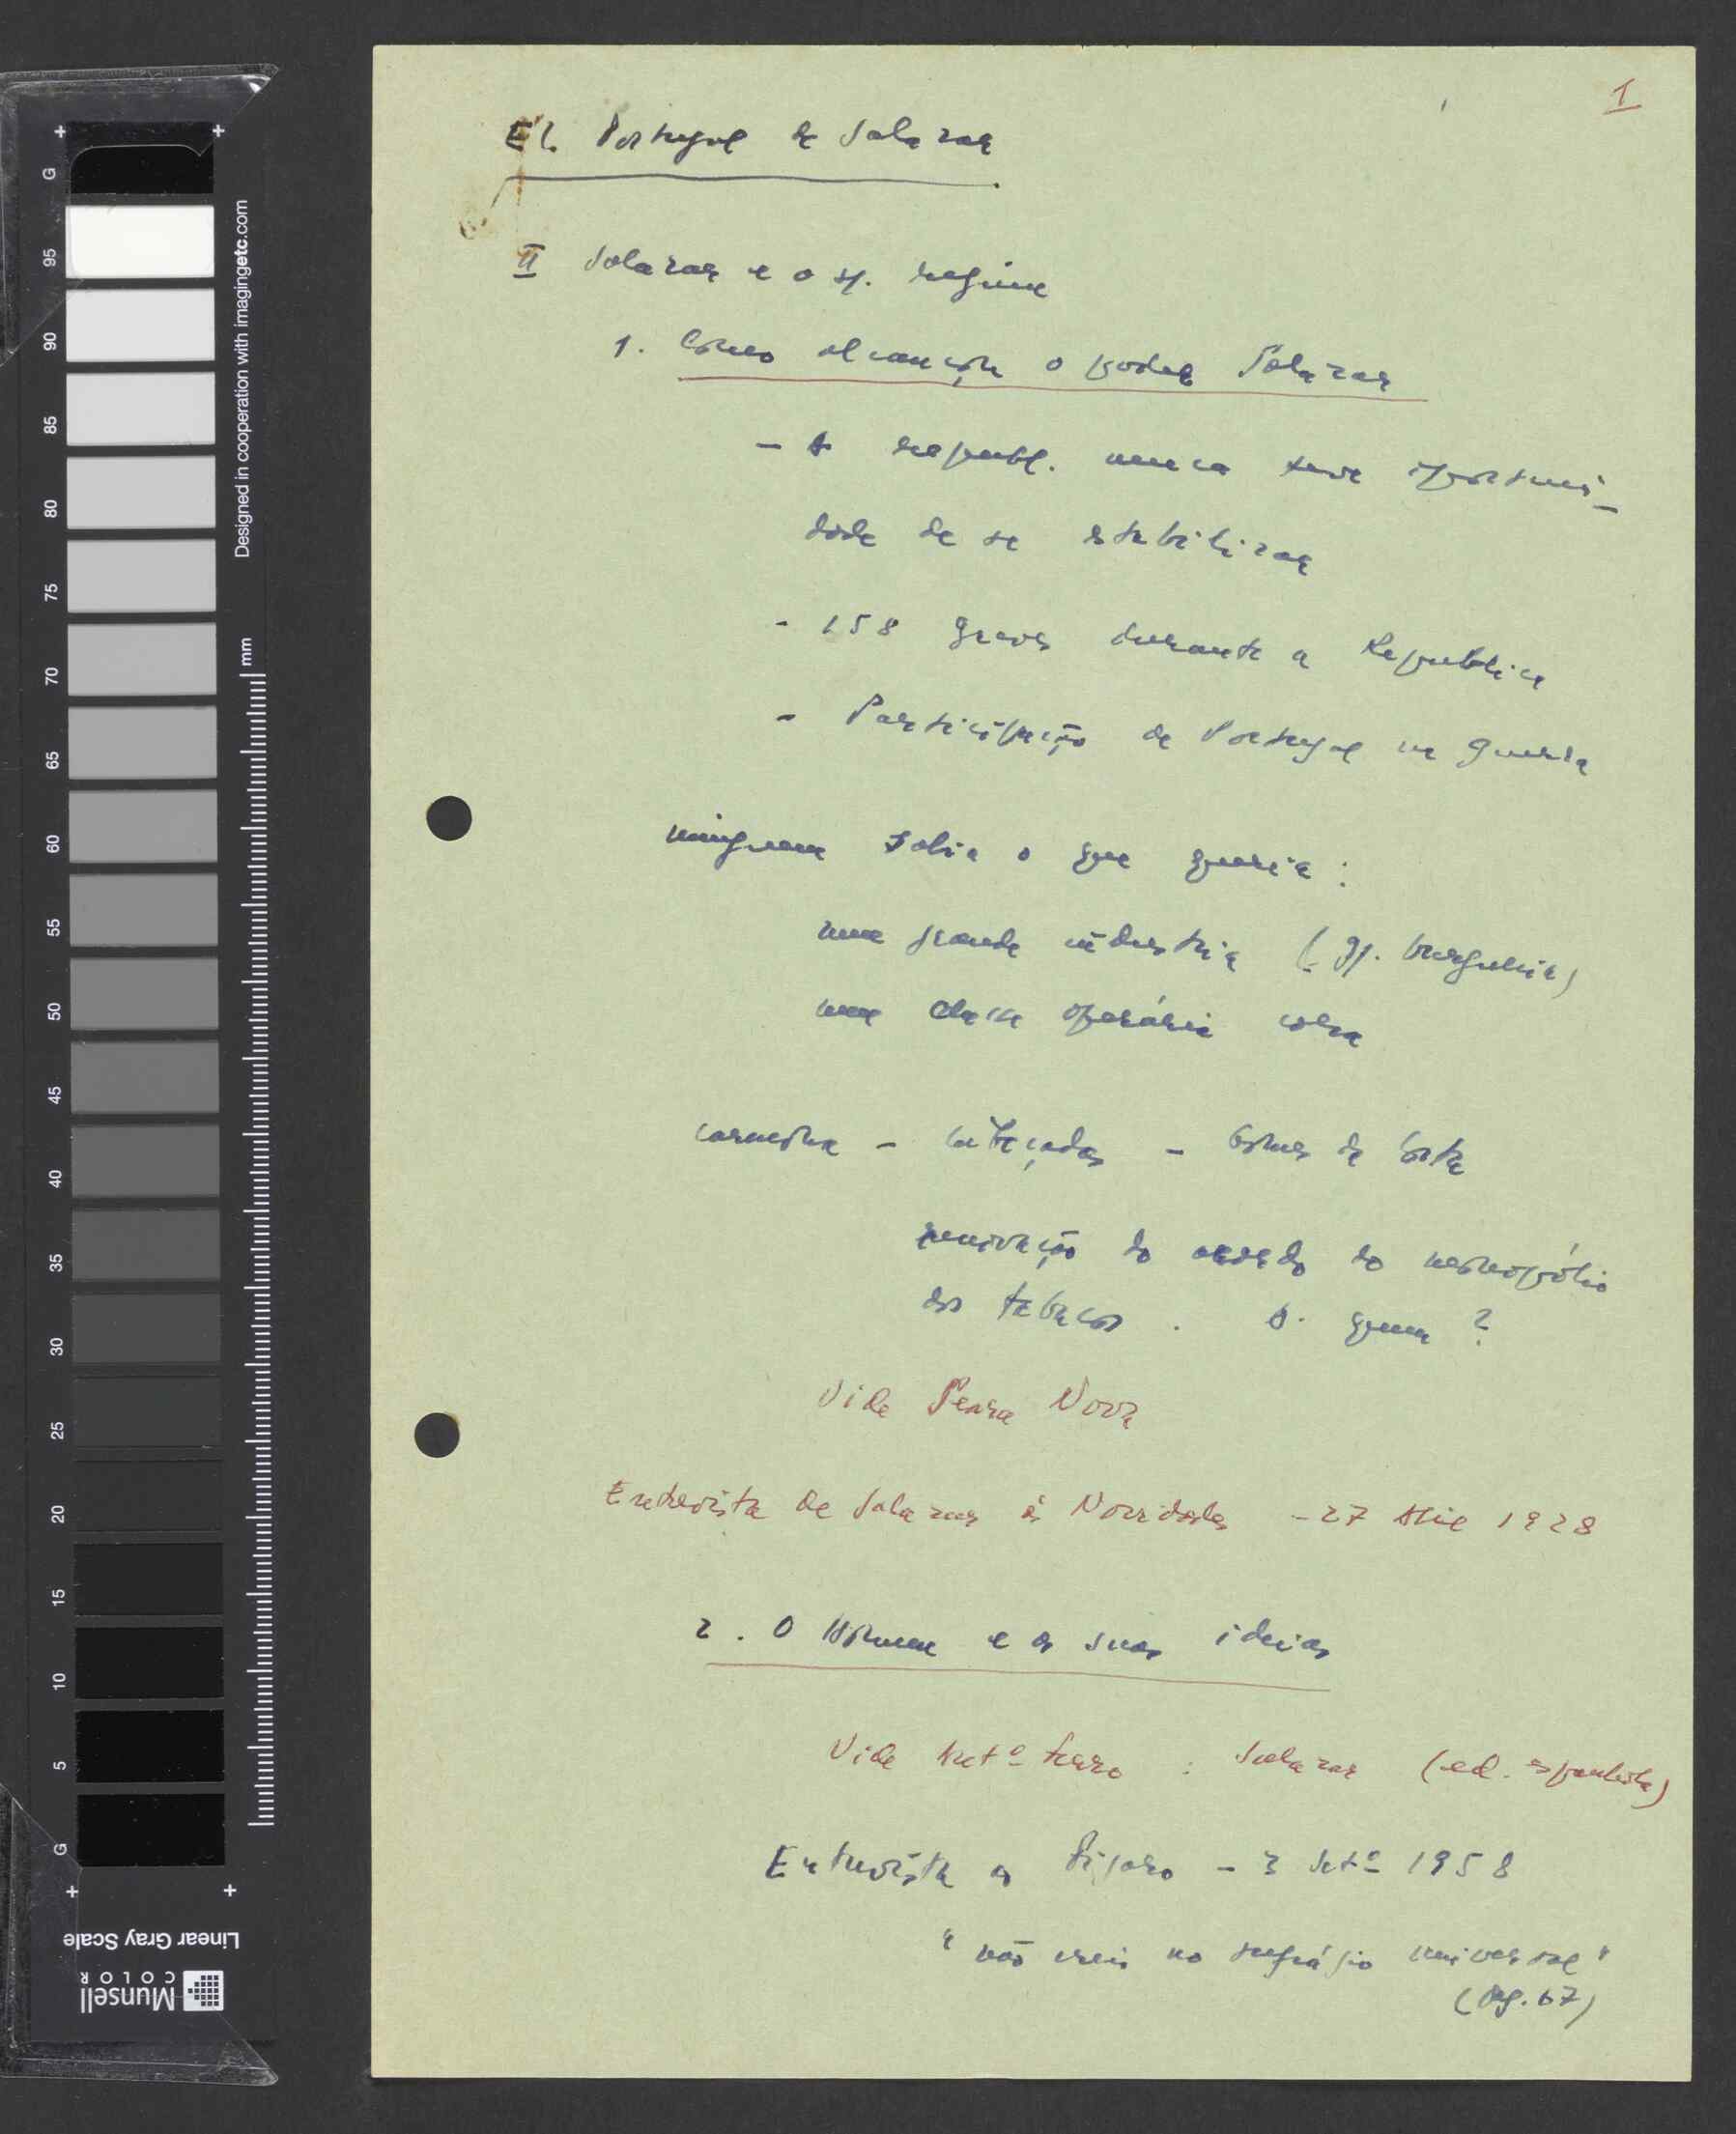 I
El Portugal de Salazar
II Salazar e o s/. regime
1. Como alcançou o poder Salazar
- A republ. nunca teve oportuni-
dade de se estabilizar
- 158 greves durante a Republica
- Participação de Portugal na guerra
ninguem sabia o que queria:
uma grande industria ( gr. burguesia)
uma classe operária
- Cunha Leal
renovação do acordo do monopólio
dos tabacos. A quem?
Vide Seara Nova
Entrevista de Salazar às Novidades - 27 Abril 1928
2. O Homem e as suas ideias
Vide Antº Ferro : Salazar (ed. espanhola)
Entrevista ao Figaro - 3 Setº 1958
"não creio no sufrágio universal"
(pg. 67)
G 95 90 85 80 75 70 65 60 55 50 45 40 35 30 25 20 15 10 5 G
Designed in cooperation with imagingetc.com
mm
Linear Gray Scale
Munsell
COLOR